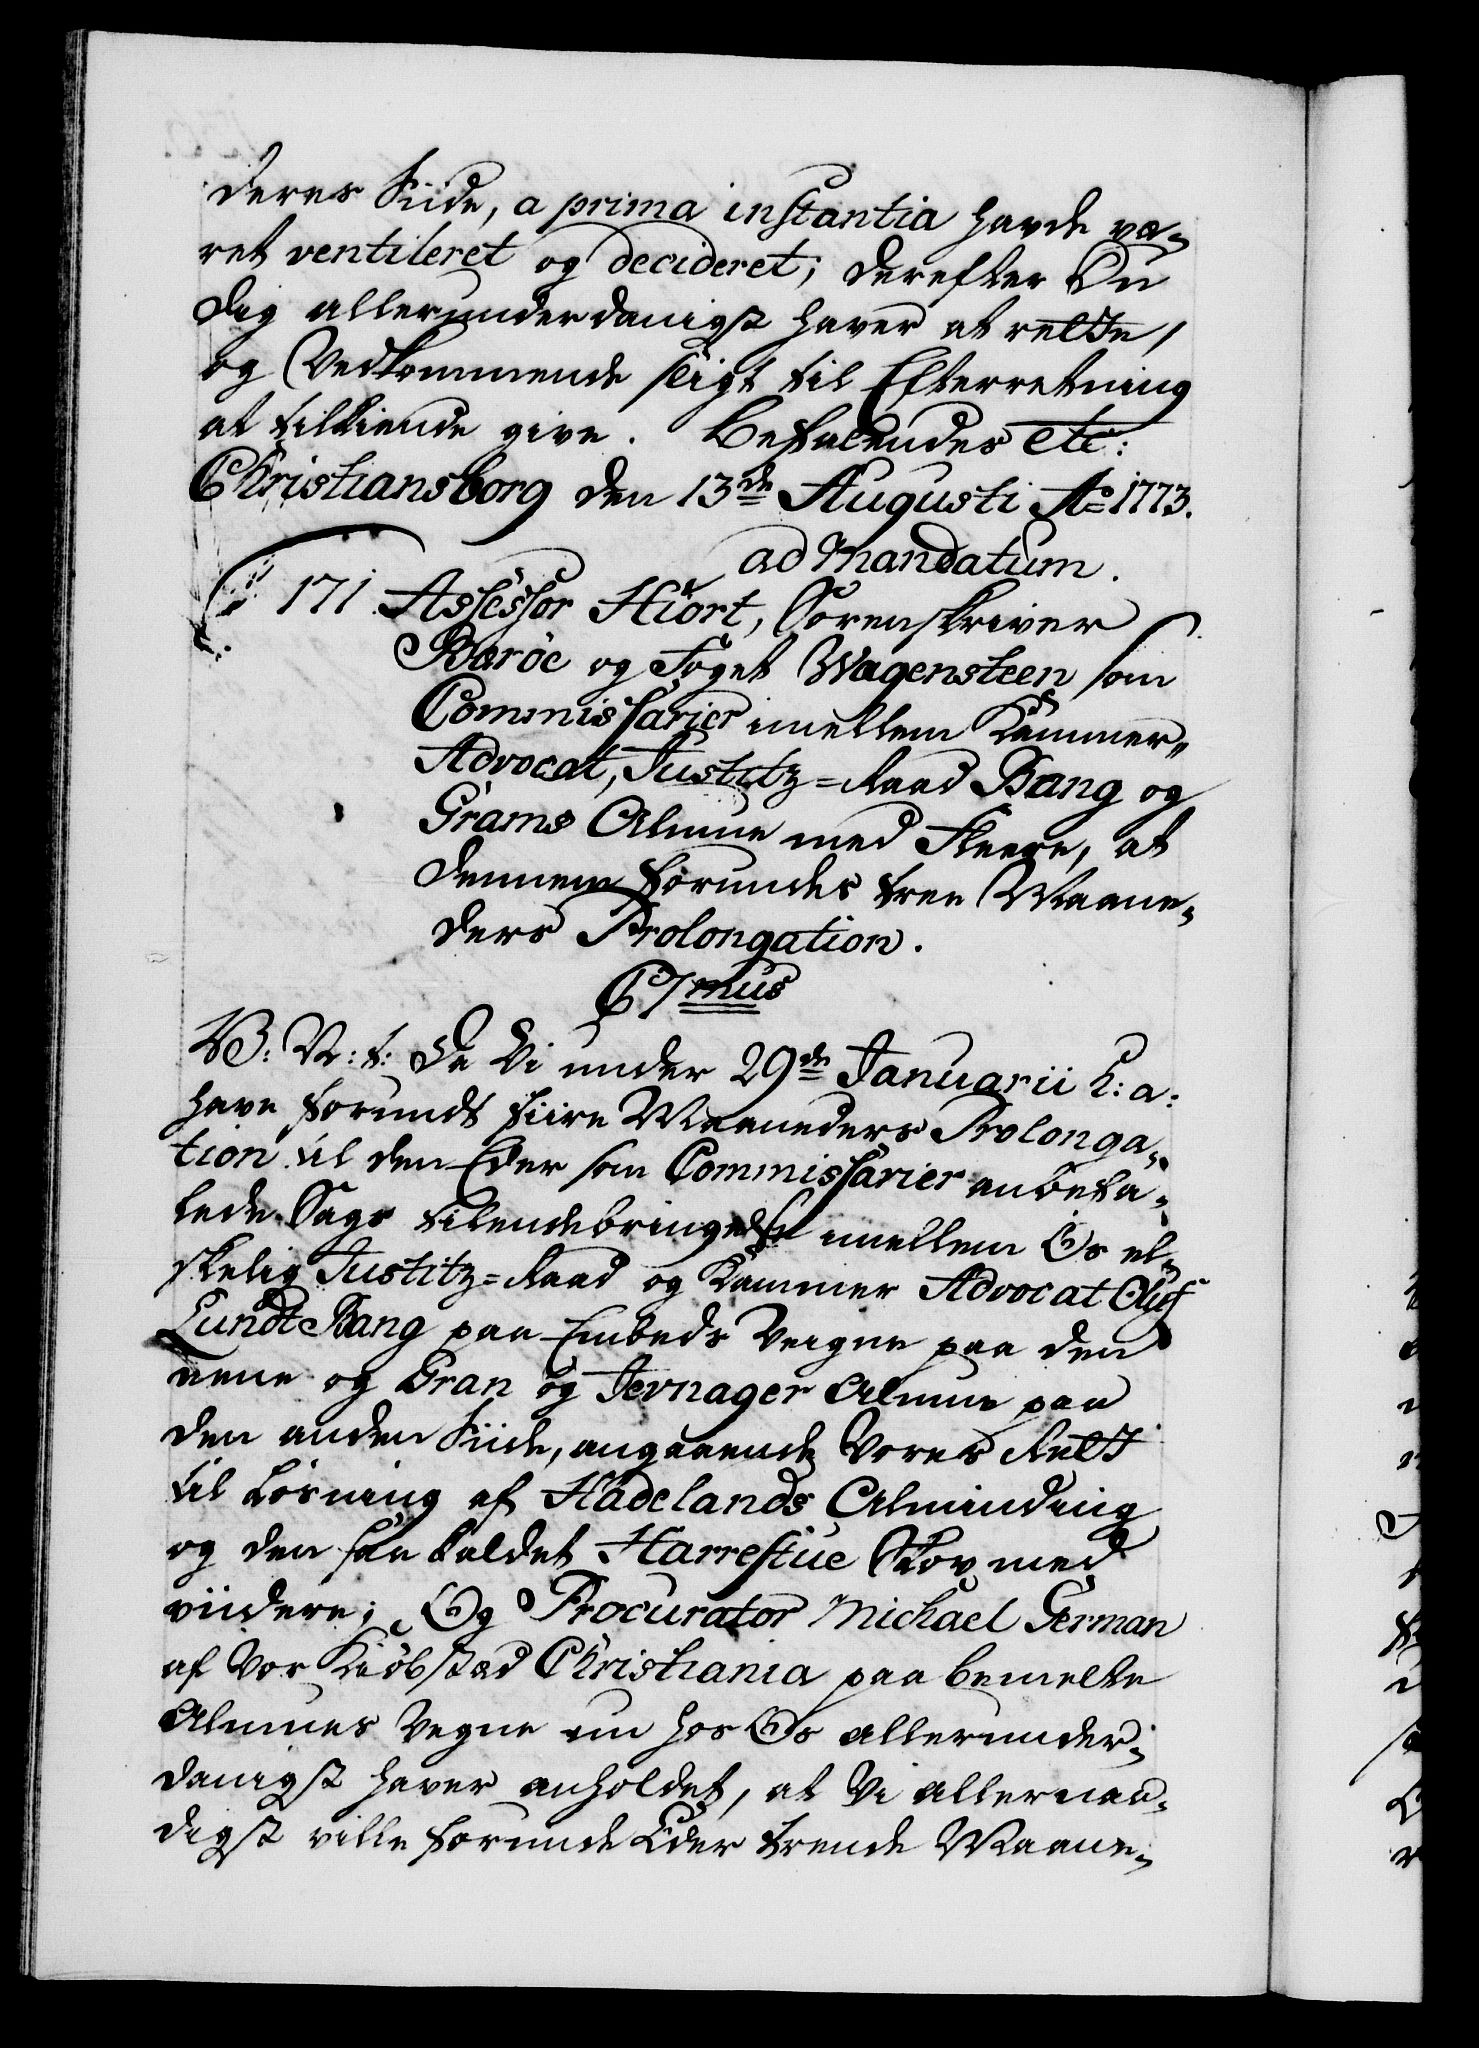 deres Siide, a prima instantia havde væ-
ret ventileret og decideret; derefter Du
dig allerunderdanigst haver at rette,
og Vedkommende sligt til Efterretning
at tilkiende give. Befalendes etc:
Christiansborg den 13de Augusti Ao 1773.
ad Mandatum.
171 Assessor Hiort, Sorenskriver
Barøe og Foget Wagensteen som
Commissarier imellem Kammer-
Advocat, Justitz-Raad Bang og
Grams Almue med Fleere, at
dennem forundes tree Maane-
ders Prolongation.
C7mus
V: V: t: Da Vi under 29de Januarii h: a:
have forundt fiire Maaneders Prolonga-
tion til den Eder som Commissarier anbefa-
lede Sags tilendebringelse imellem Os el-
skelig Justitz-Raad og Kammer Advocat Oluf
Lundt Bang paa Embeds Veigne paa den
eene og Gran og Jevnager Almue paa
den anden Siide, angaaende Vores Rett
til Losning af Hadelands Alminding
og den saa kaldet Harrestue Skov med
viidere; Og Procurator Michael German
af Vor Kiøbstæd Christiania paa bemelte
Almues Vegne nu hos Os allerunder-
danigst haver anholdet, at Vi allernaa-
digst ville forunde Eder trende Maane-